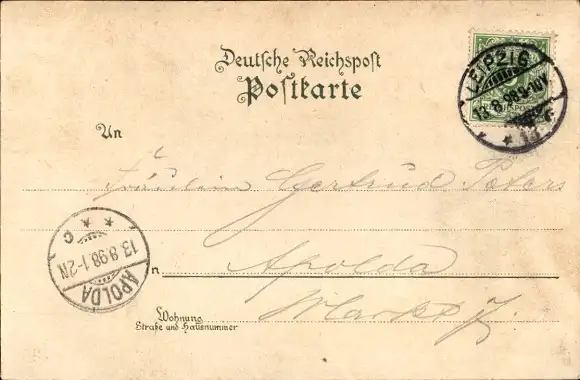 Deutsche Reichspost
Postkarte
LEIPZIG
13.8.98.9-10V.
An
Fräulein Gertrud Peters
13.8.98.1-2N
APOLDA
C
n Apolda
Markt 7.
Wohnung
Straße und Hausnummer